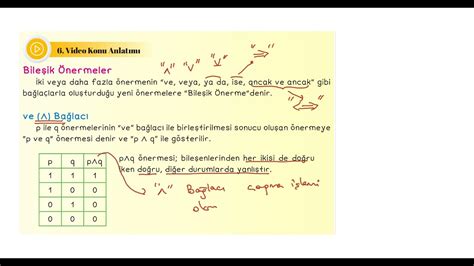 6. Video Konu Anlatımı
"∧" "∨" "⊻" "⇒"
Bileşik Önermeler
İki veya daha fazla önermenin "ve, veya, ya da, ise, ancak ve ancak" gibi
bağlaçlarla oluşturduğu yeni önermelere "Bileşik Önerme"denir.
"⇔"
ve (∧) Bağlacı
p ile q önermelerinin "ve" bağlacı ile birleştirilmesi sonucu oluşan önermeye
"p ve q" önermesi denir ve "p ∧ q" ile gösterilir.
p q p∧q
1 1 1
1 0 0
0 1 0
0 0 0
p∧q önermesi; bileşenlerinden her ikisi de doğru
iken doğru, diğer durumlarda yanlıştır.
"∧" Bağlacı çarpma işlemi